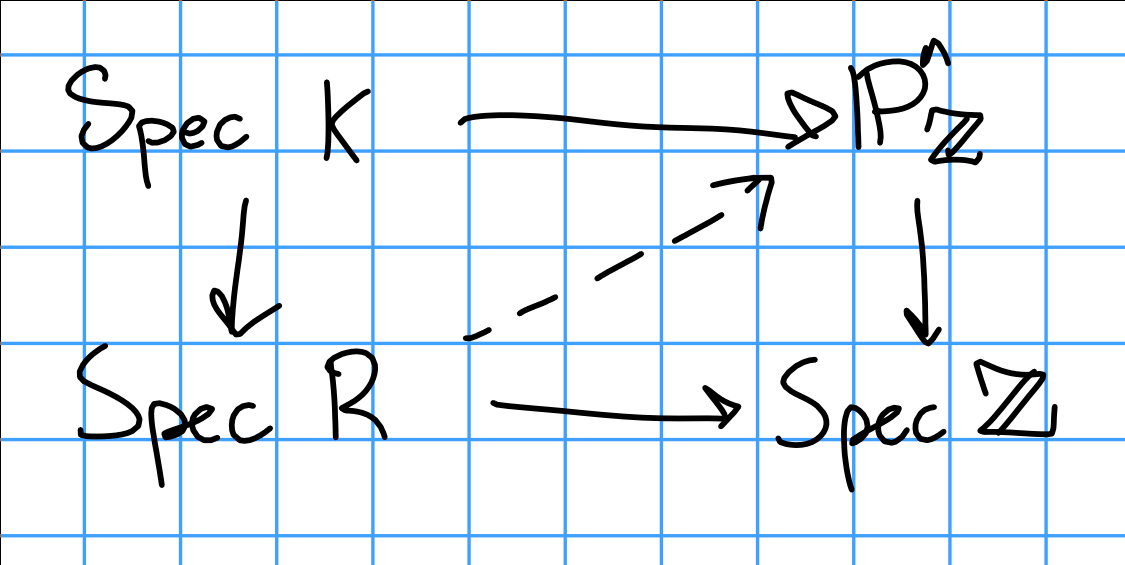 Spec K ℙⁿ_ℤ
Spec R Spec ℤ